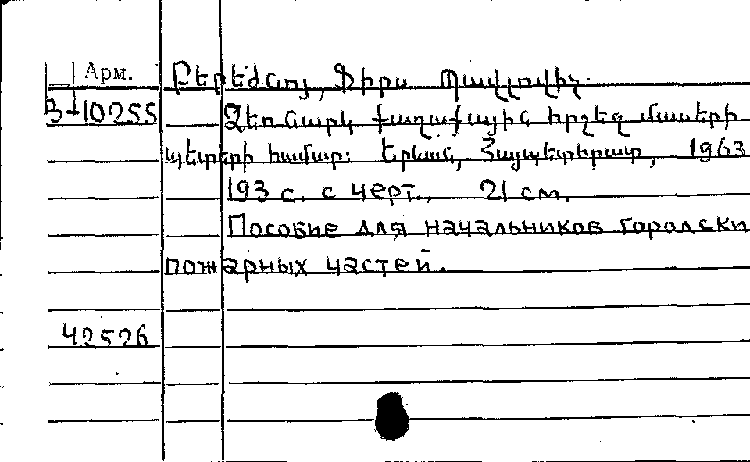 Арм.
Բերեժնոյ, Ֆիրս Պավլովիչ.
В-10255
Ձեռնարկ քաղաքային հրշեջ մասերի
պետերի համար: Երևան, Հայպետհրատ, 1963
193 с. с черт., 21 см.
Пособие для начальников городски
пожарных частей.
42526